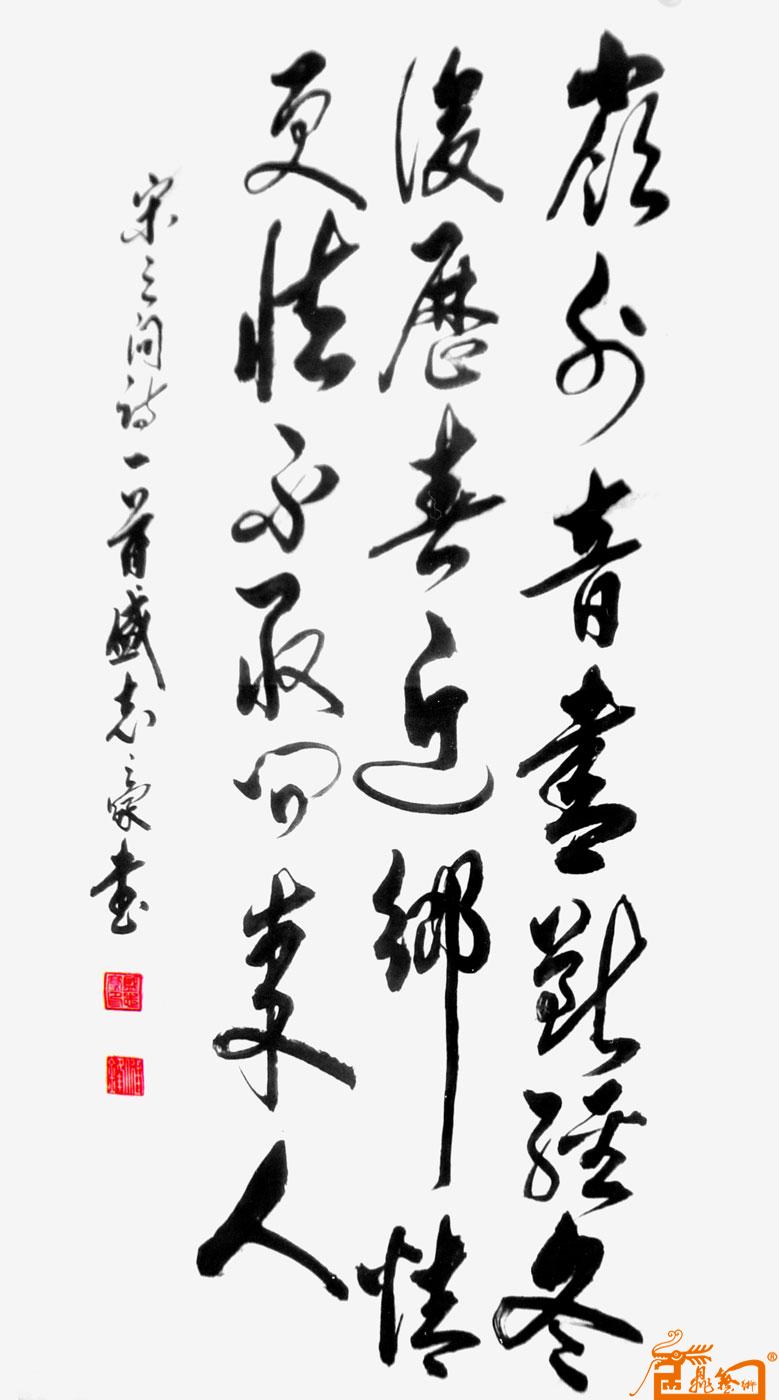 嶺外音書斷經冬
復歷春近鄉情
更怯不敢問來人
宋之问诗一首盛志豪書